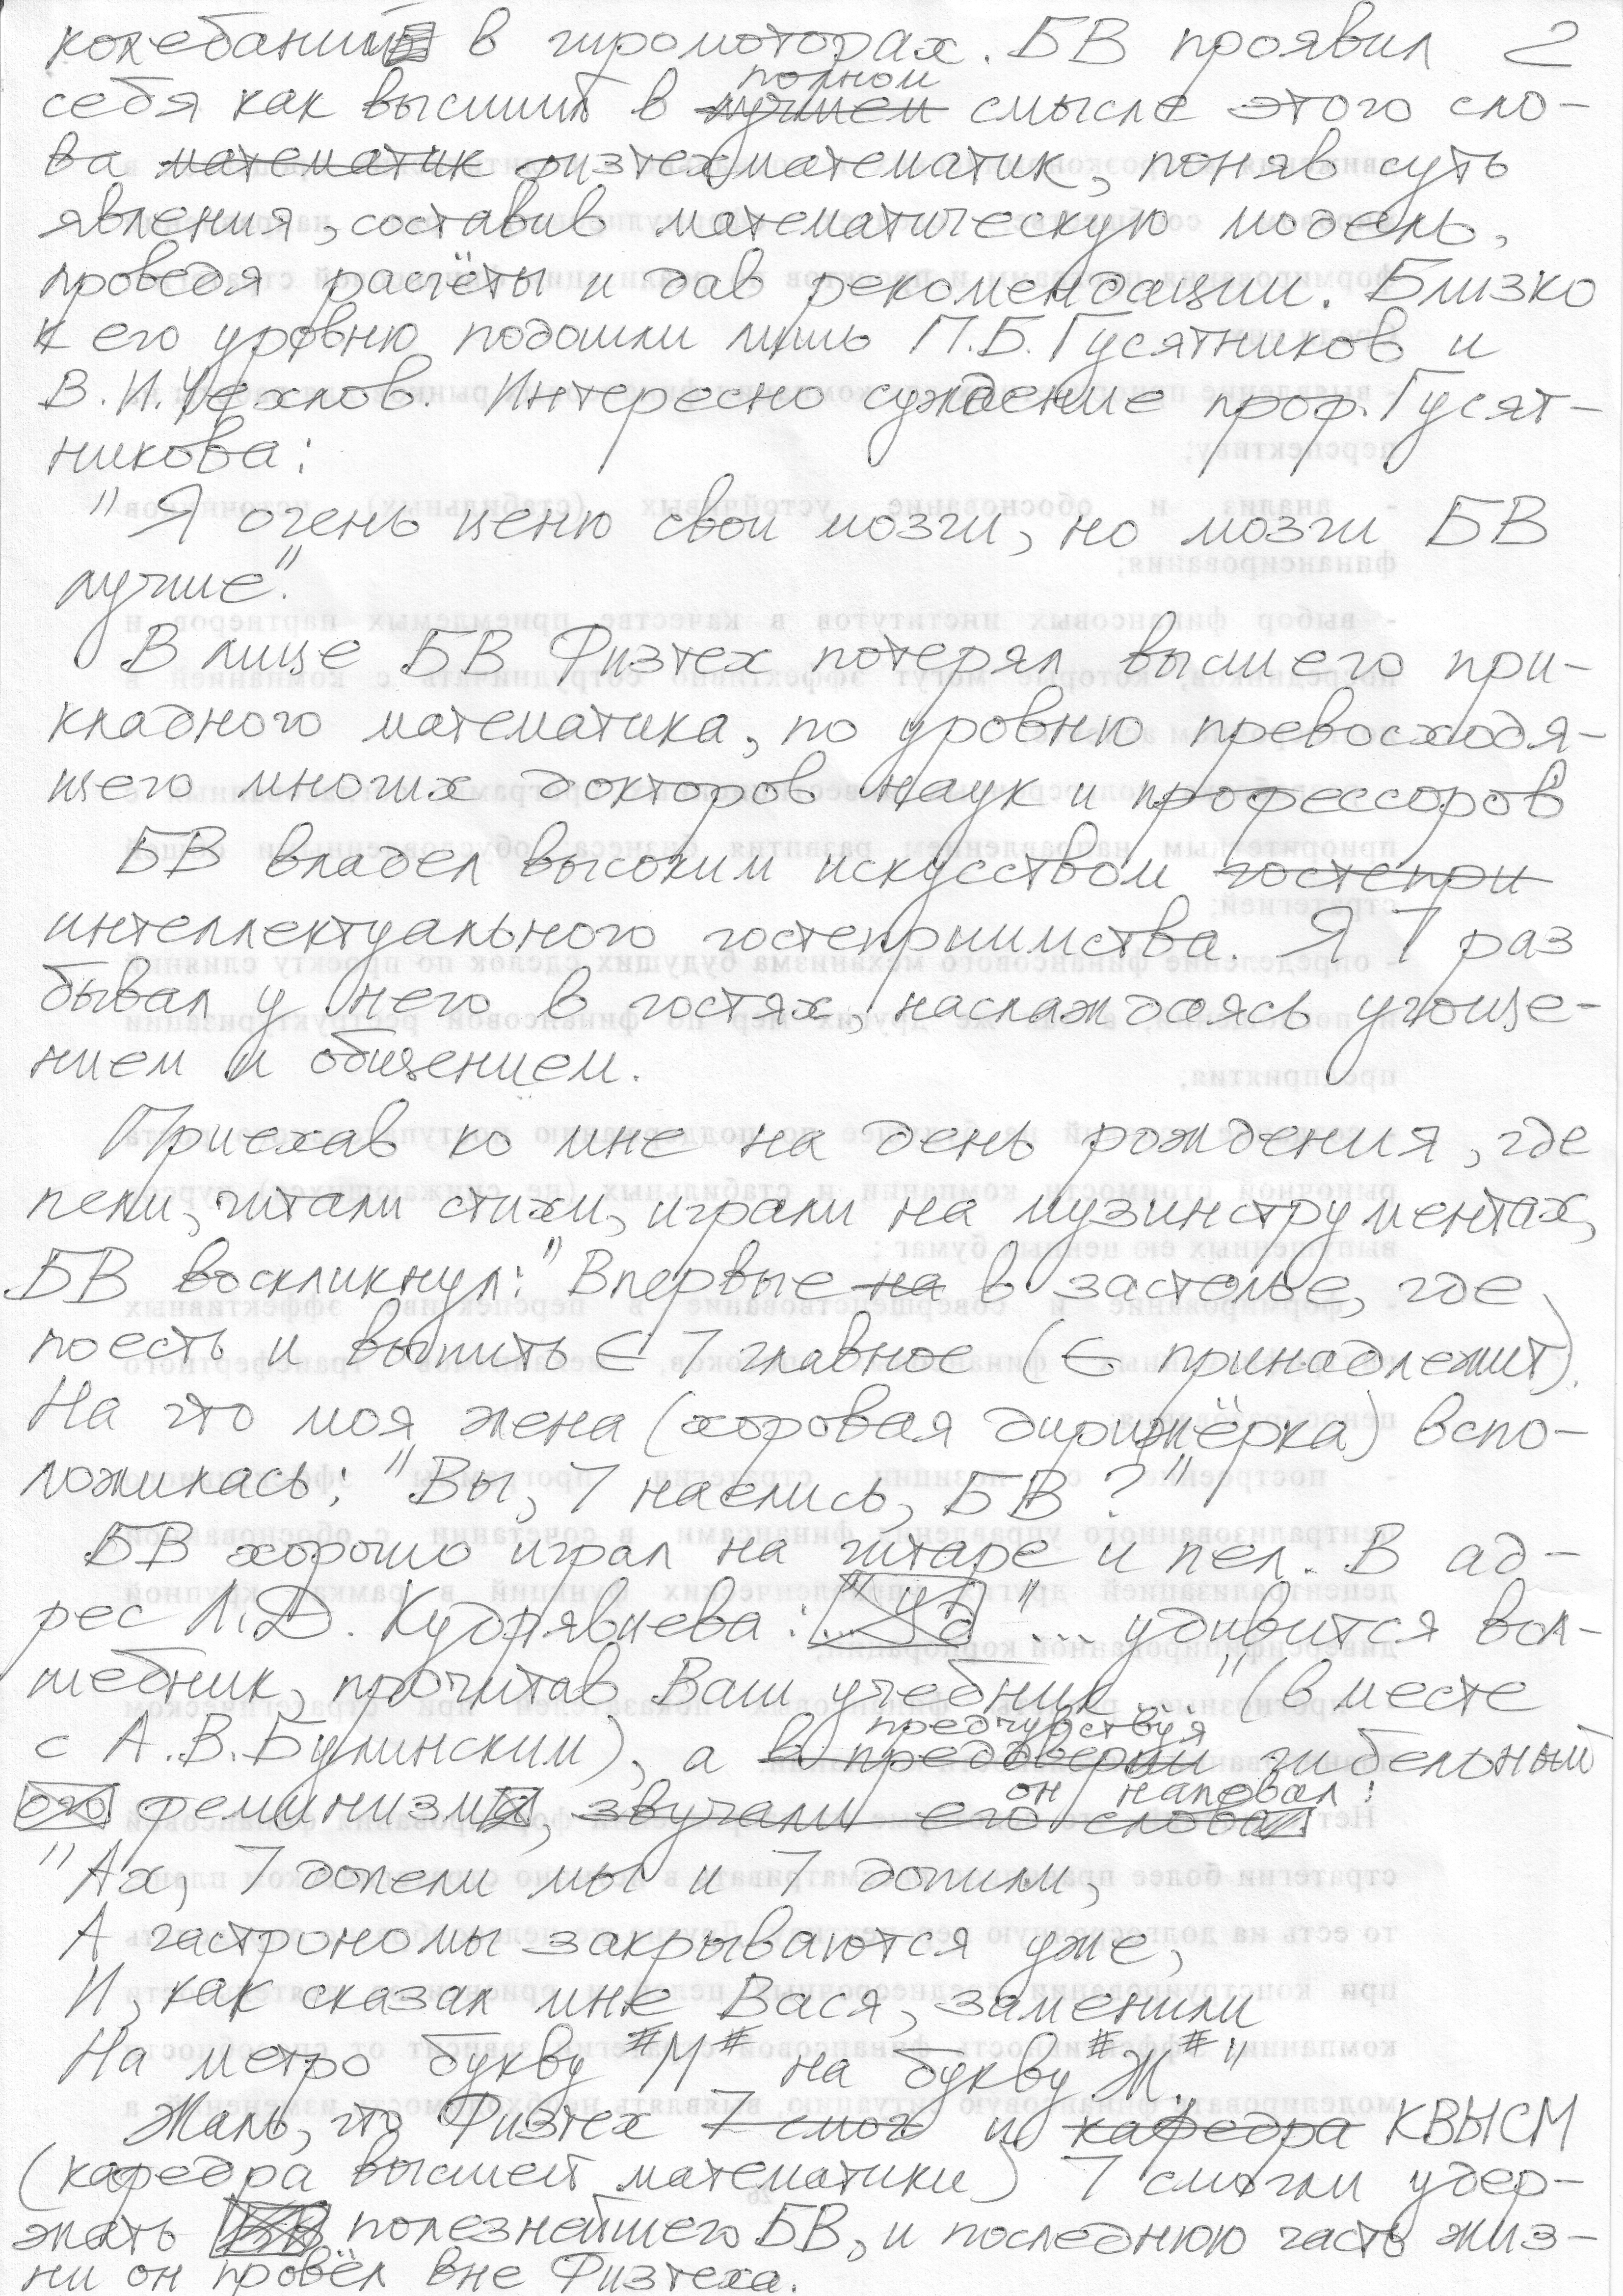 колебаний в гиромоторах. БВ проявил 2
полном
себя как высший в лучшем смысле этого сло-
ва математик физтехматематик, поняв суть
явления, составив математическую модель,
проведя расчёты и дав рекомендации. Близко
к его уровню подошли лишь П.Б. Гусятников и
В.И. Чехлов. Интересно суждение проф. Гусят-
никова:
"Я очень ценю свои мозги, но мозги БВ
лучше".
В лице БВ Физтех потерял высшего при-
кладного математика, по уровню превосходя-
щего многих докторов наук и профессоров
БВ владел высоким искусством гостепри
интеллектуального гостеприимства. Я 7 раз
бывал у него в гостях, наслаждаясь угоще-
нием и общением.
Приехав ко мне на день рождения, где
пели, читали стихи, играли на музинструментах,
БВ воскликнул: "Впервые на в застолье, где
поесть и выпить ∈ 7 главное (∈ принадлежит).
На что моя жена (хоровая дирижёрка) вспо-
ложилась: "Вы, 7 наелись, БВ?"
БВ хорошо играл на гитаре и пел. В ад-
рес Л.Д. Кудрявцева: "... удивится вол-
шебник, прочитав Ваш учебник..." (вместе
предчувствуя
с А.В. Булинским), а в преддверии гибельный
ого феминизм, звучали его слова
он напевал:
"Ах, 7 допели мы и 7 допили,
А гастрономы закрываются уже,
И, как сказал мне Вася, заменили
На метро букву "М" на букву "Ж"."
Жаль, что Физтех 7 смог и кафедра КВЫСМ
(кафедра высшей математики) 7 смогли удер-
жать БВ полезнейшего БВ, и последнюю часть жиз-
ни он провёл вне Физтеха.